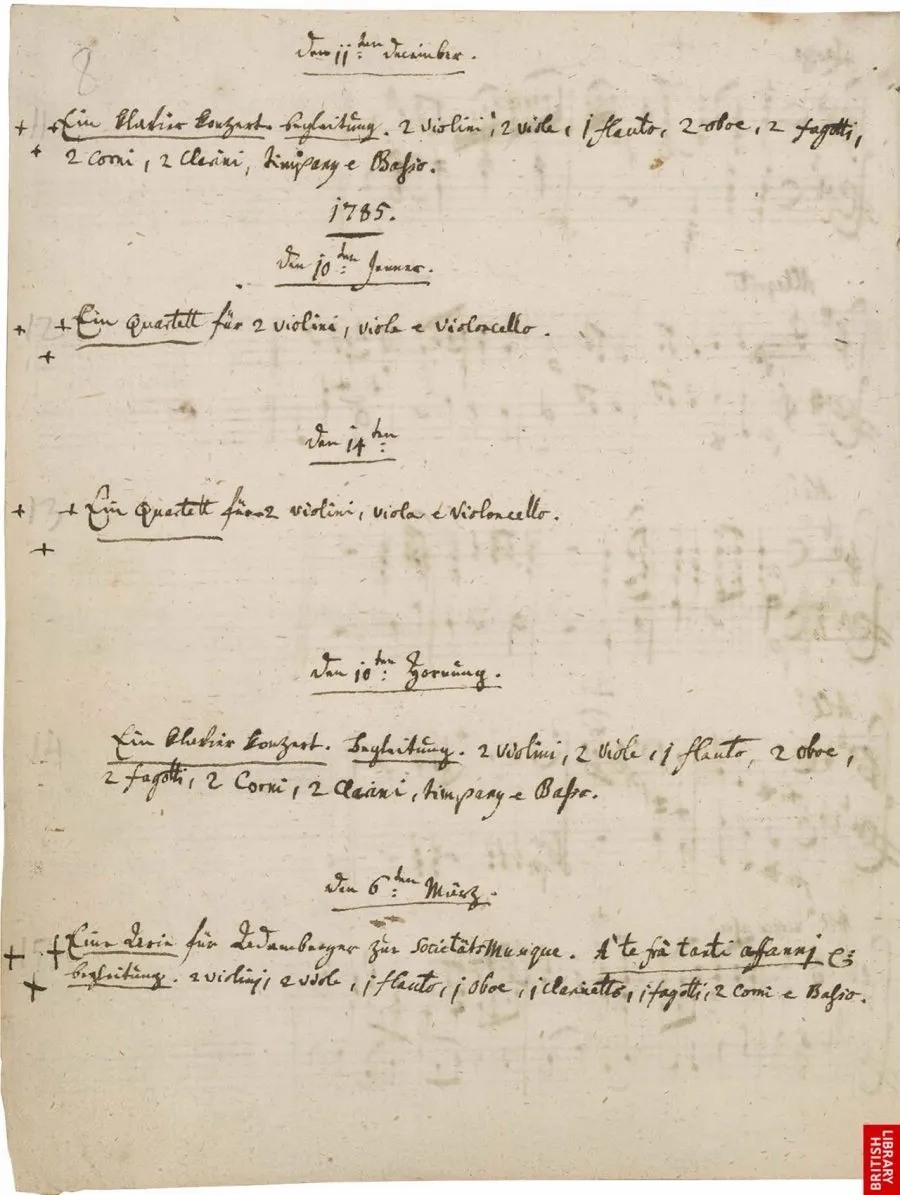 8
Den 11:ten December.
Ein klavier konzert. begleitung. 2 violini, 2 viole, 1 flauto, 2 oboe, 2 fagotti,
2 Corni, 2 Clarini, timpany e Baßo.
1785.
den 10:ten Jenner.
Ein Quartett für 2 violini, viola e violoncello.
12
den 14:ten
Ein Quartett für 2 violini, viola e violoncello.
13
den 10:ten Hornung.
Ein klavier konzert. begleitung. 2 violini, 2 viole, 1 flauto, 2 oboe,
2 fagotti, 2 Corni, 2 Clarini, timpany e Baßo.
14
den 6:ten März.
Eine Arie für Adamberger zur SocietätsMusique. A te frà tanti affanni &:
begleitung. 2 violinj, 2 viole, 1 flauto, 1 oboe, 1 clarinetto, 1 fagotti, 2 Corni e Baßo.
BRITISH
LIBRARY